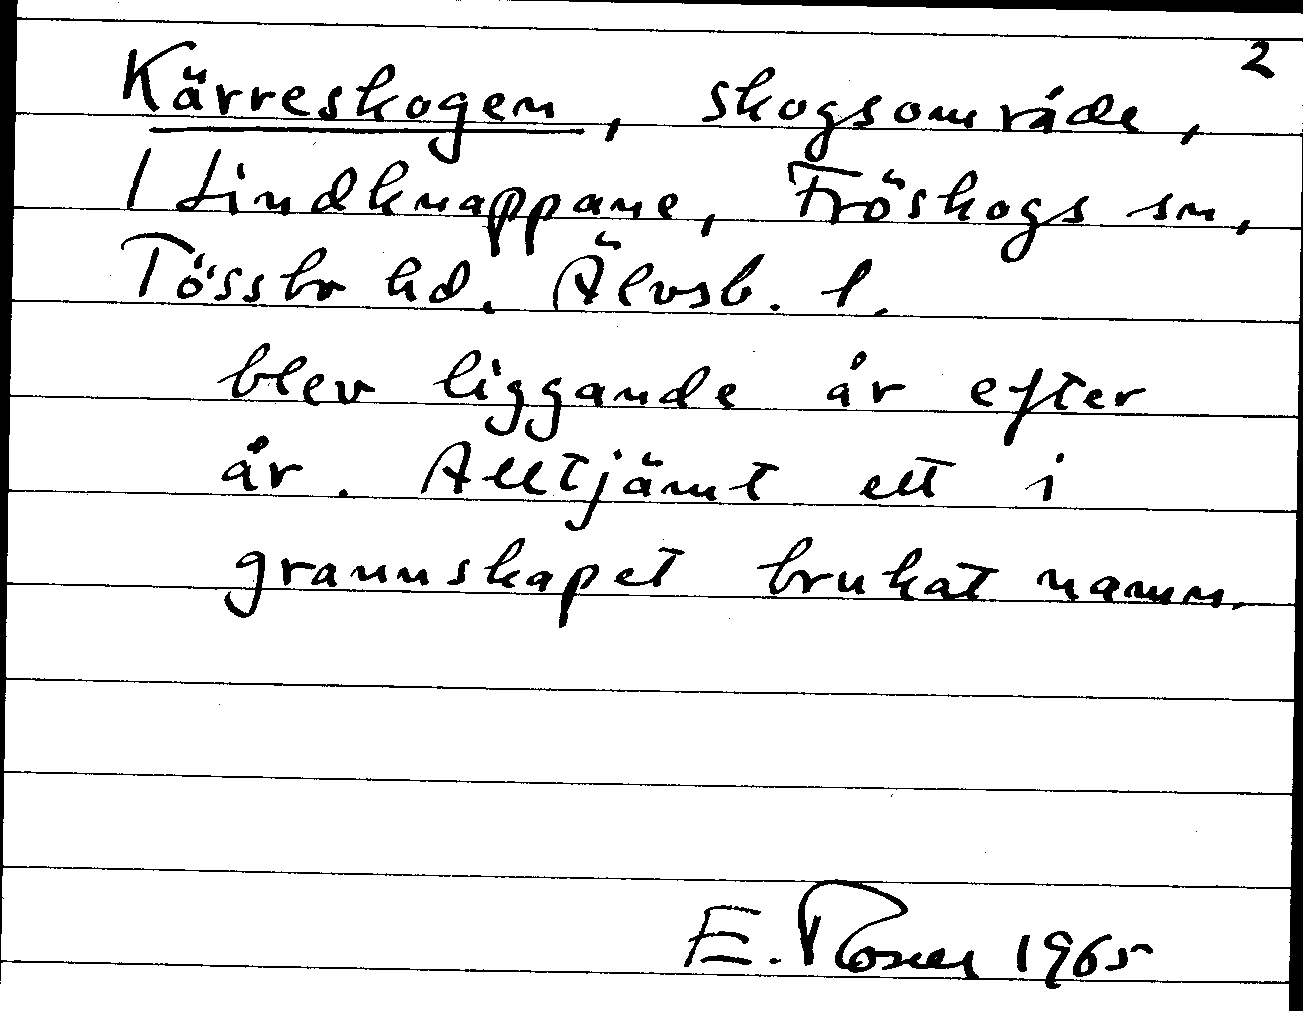 2
Kärreskogen, skogsområde,
1 Lindknappane, Fröskogs sn,
Tössbo hd. Älvsb. l.
blev liggande år efter
år. Alltjämt ett i
grannskapet brukat namn.
E. Rosell 1965